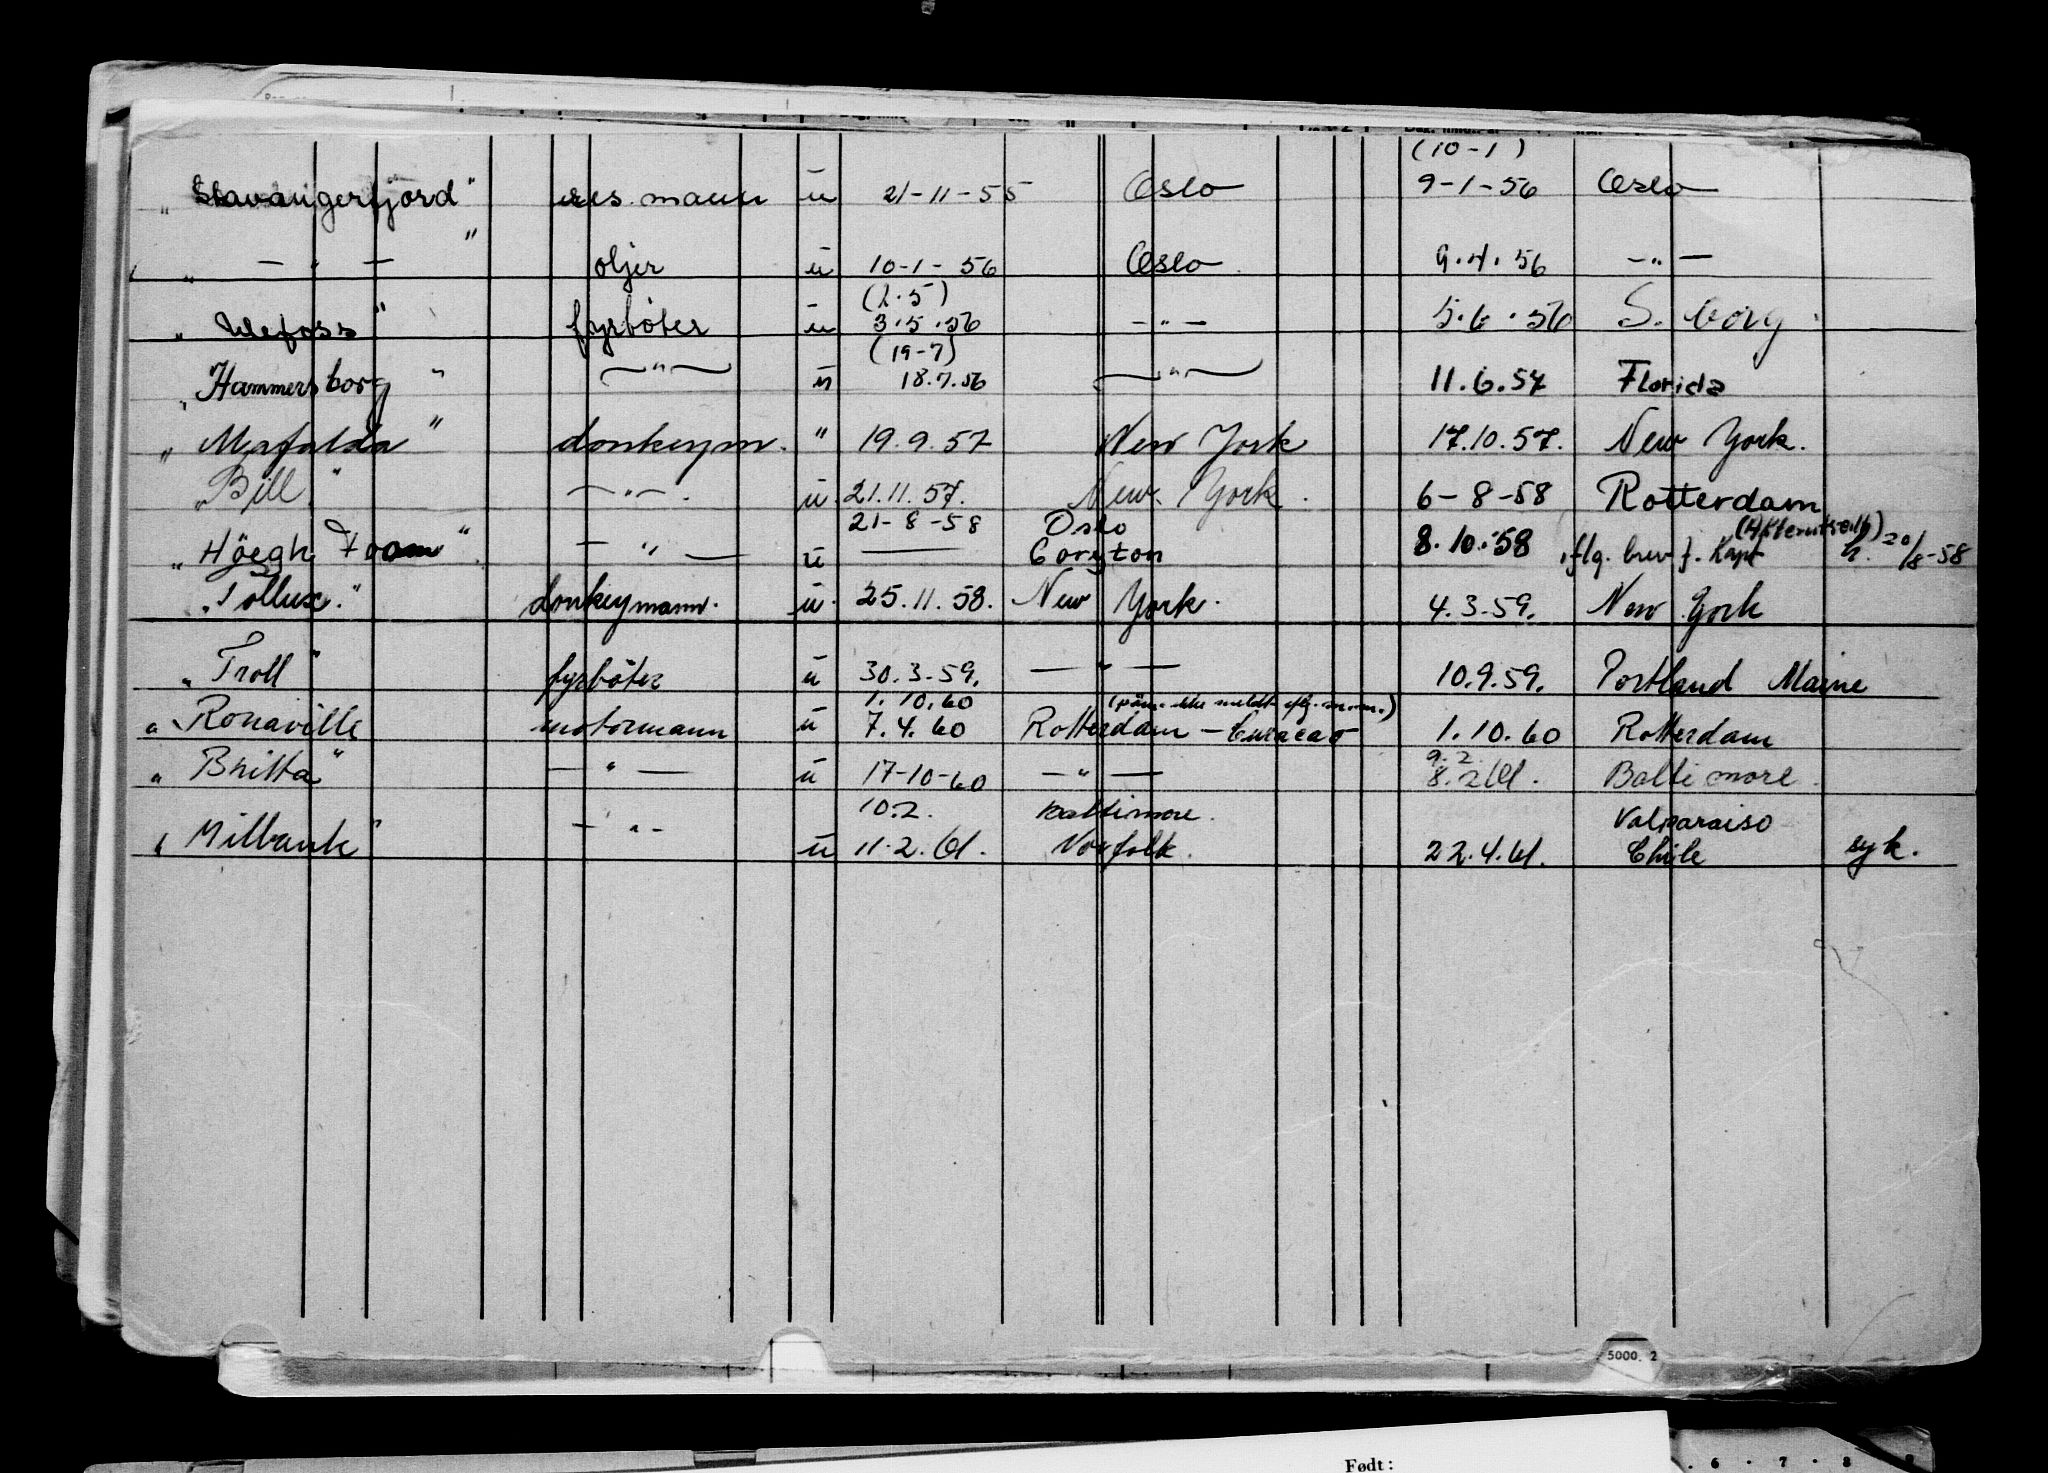 (10-1)
„Stavangerfjord" res. mann u 21-11-55 Oslo 9-1-56 Oslo
„ — " — " oljer u 10-1-56 Oslo 9.4.56 — " —
(2.5)
„Ulefoss" fyrbøter u 3.5.56 — " — 5.6.56 S. borg
(19-7)
„Hammersborg" — " — u 18.7.56 — " — 11.6.57 Florida
„Mafalda" donkeym. " 19.9.57 New York 17.10.57. New York.
„Bill" — " — u. 21.11.57. New York. 6-8-58 Rotterdam
21-8-58 Oslo
„Höegh Foam" — " — u — Coryton 8.10.58 flg. brev f. Kapt 20/8-58
„Pollux." donkeymann. u. 25.11.58. New York. 4.3.59. New York
„Troll" fyrbøter u 30.3.59. — " — 10.9.59. Portland Maine
1.10.60
„Ronaville motormann u 7.4.60 Rotterdam - Curacao 1.10.60 Rotterdam
9.2.
„Britta" — " — u 17-10-60 — " — 8.2.61. Baltimore.
10.2. Baltimore. Valparaiso
„Milbank" — " — u 11.2.61. Norfolk. 22.4.61. Chile syk.
5000. 2
Født:
6 · 7 · 8 · 9